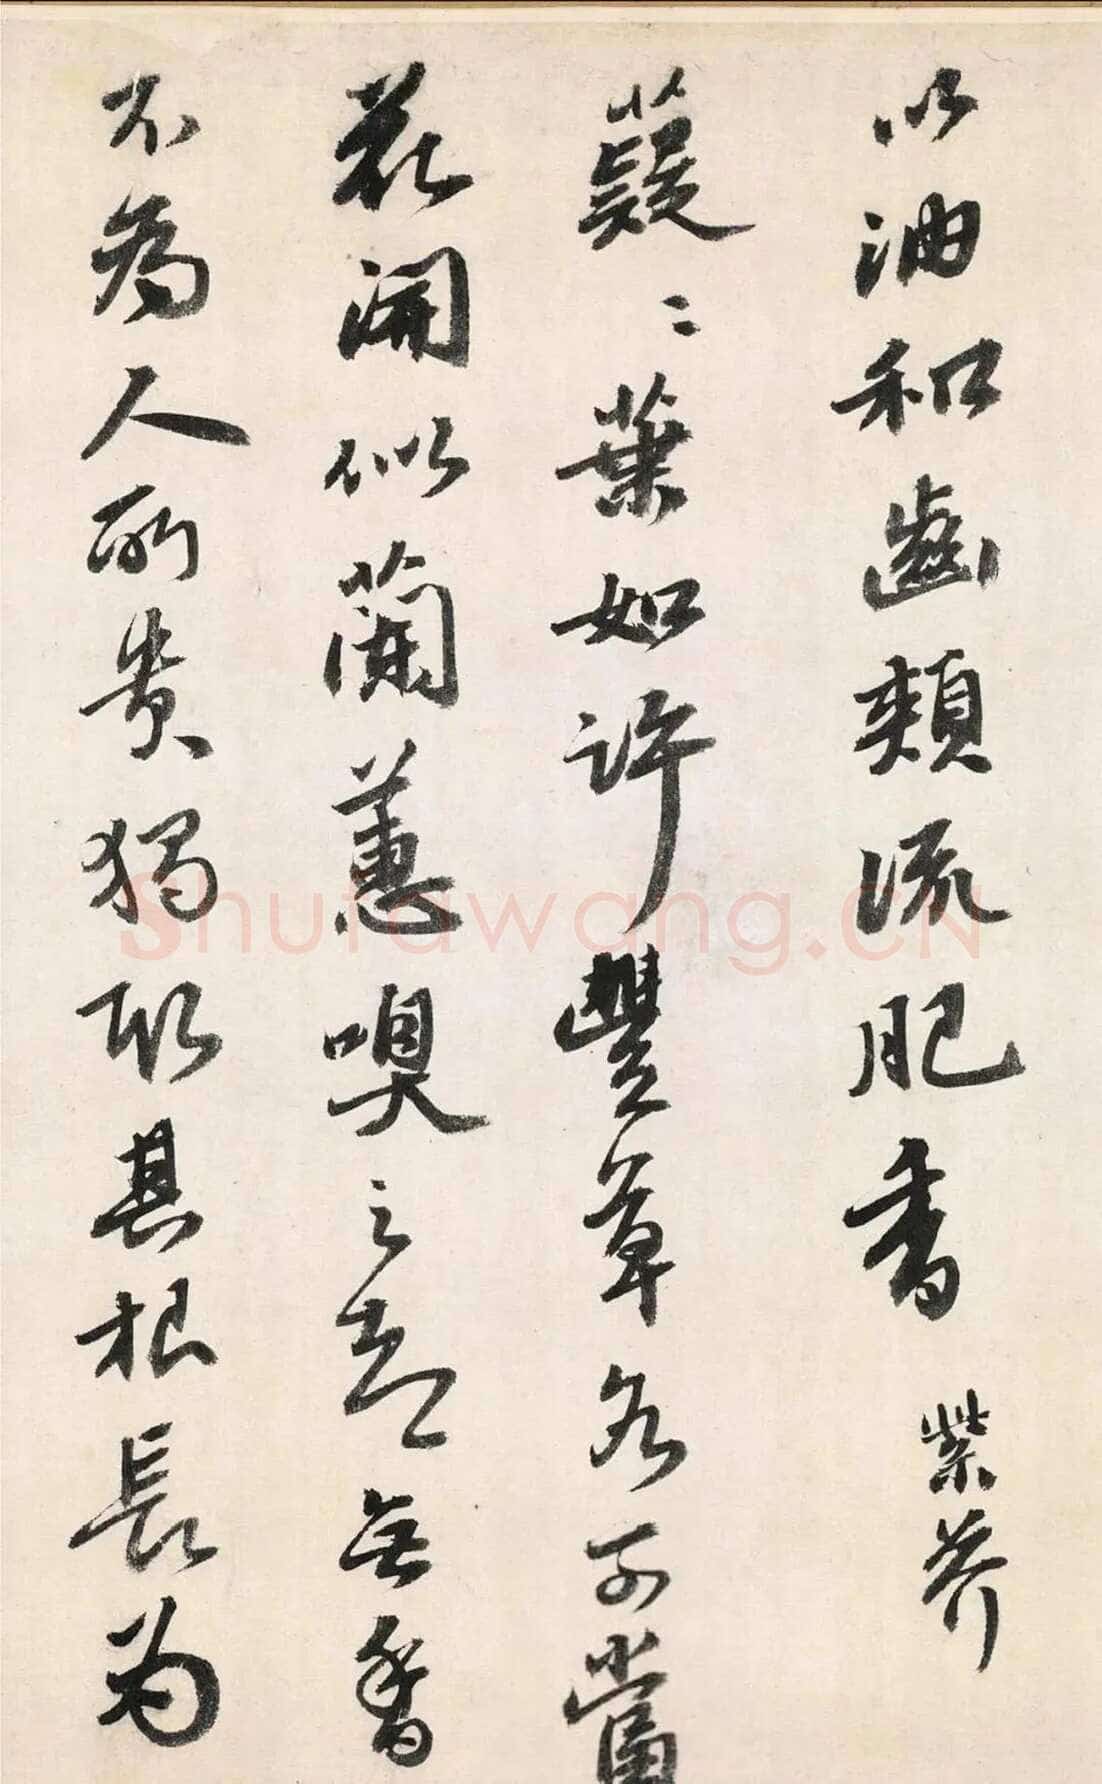 以油和齒頰流肥香 紫芥
薿〻葉如許豐草名可當
花開似蘭蕙嗅之却無香
不為人所貴獨取其根長為
Shufawang.CN